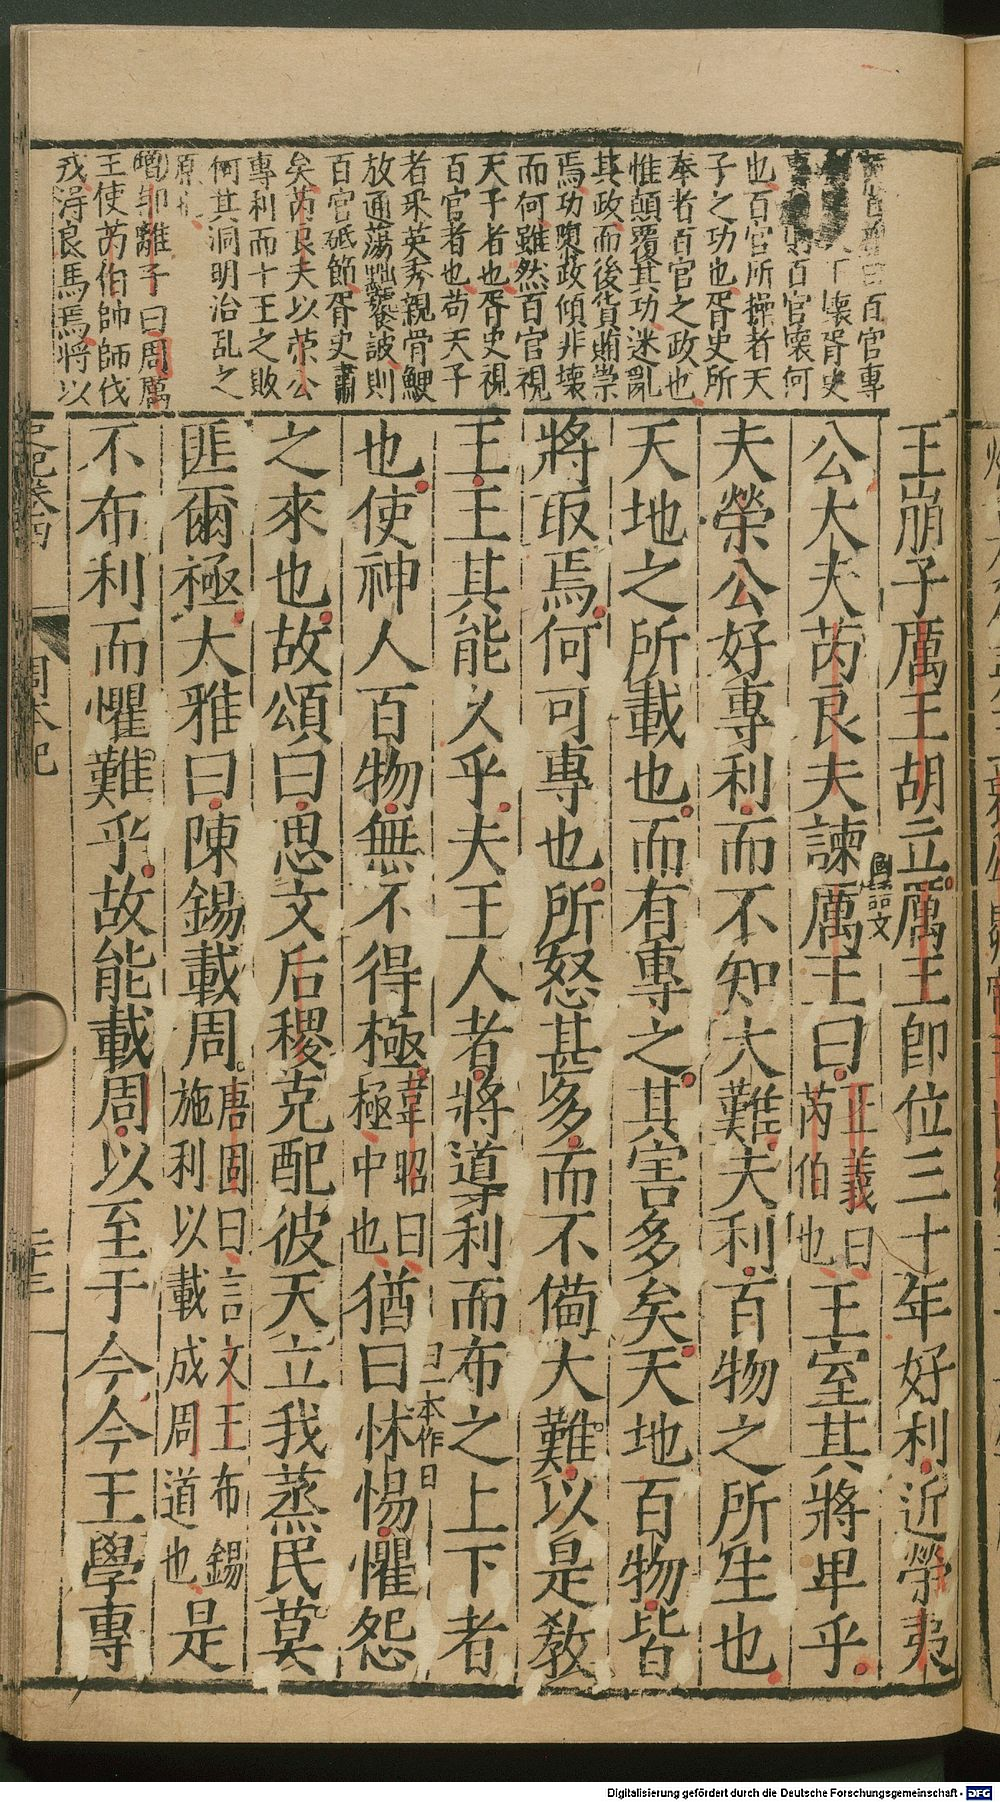 曰百官專
下壞胥史
則百官壞何
也百官所操者天
子之功也胥史所
奉者百官之政也
惟顛覆其功迷亂
其政而後貨賄崇
焉功隳政傾非壞
而何雖然百官視
天子者也胥史視
百官者也苟天子
者采英秀親骨鯁
放通蕩黜饕詖則
百官砥節胥史肅
矣芮良夫以荣公
專利而十王之敗
何其洞明治乱之
原
離子曰周厲
王使芮伯帥師伐
戎得良馬焉將以
王崩子厲王胡立厲王即位三十年好利近榮夷
公大夫芮良夫諫厲王曰正義曰芮伯也王室其將卑乎
國語文
夫榮公好專利而不知大難夫利百物之所生也
天地之所載也而有專之其害多矣天地百物皆
將取焉何可專也所怒甚多而不備大難以是敎
王王其能久乎夫王人者將導利而布之上下者
也使神人百物無不得極韋昭曰極中也猶曰怵惕懼怨
日一本作日
之來也故頌曰思文后稷克配彼天立我蒸民莫
匪爾極大雅曰陳錫載周唐固曰言文王布錫施利以載成周道也是
不布利而懼難乎故能載周以至于今今王學專
周本紀
Digitalisierung gefördert durch die Deutsche Forschungsgemeinschaft - DFG